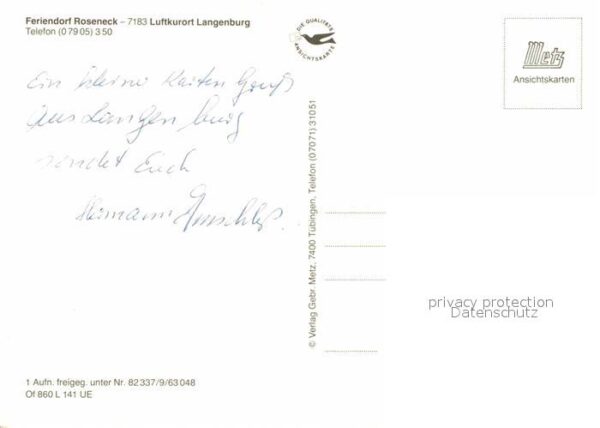 Feriendorf Roseneck – 7183 Luftkurort Langenburg
Telefon (0 79 05) 3 50
DIE QUALITÄTS
ANSICHTSKARTE
Metz
Ansichtskarten
Ein kleine Karten Gruß
aus Langenburg
sendet Euch
Hermann
© Verlag Gebr. Metz, 7400 Tübingen, Telefon (0 70 71) 3 10 51
privacy protection
Datenschutz
1 Aufn. freigeg. unter Nr. 82 337/9/63 048
Of 860 L 141 UE